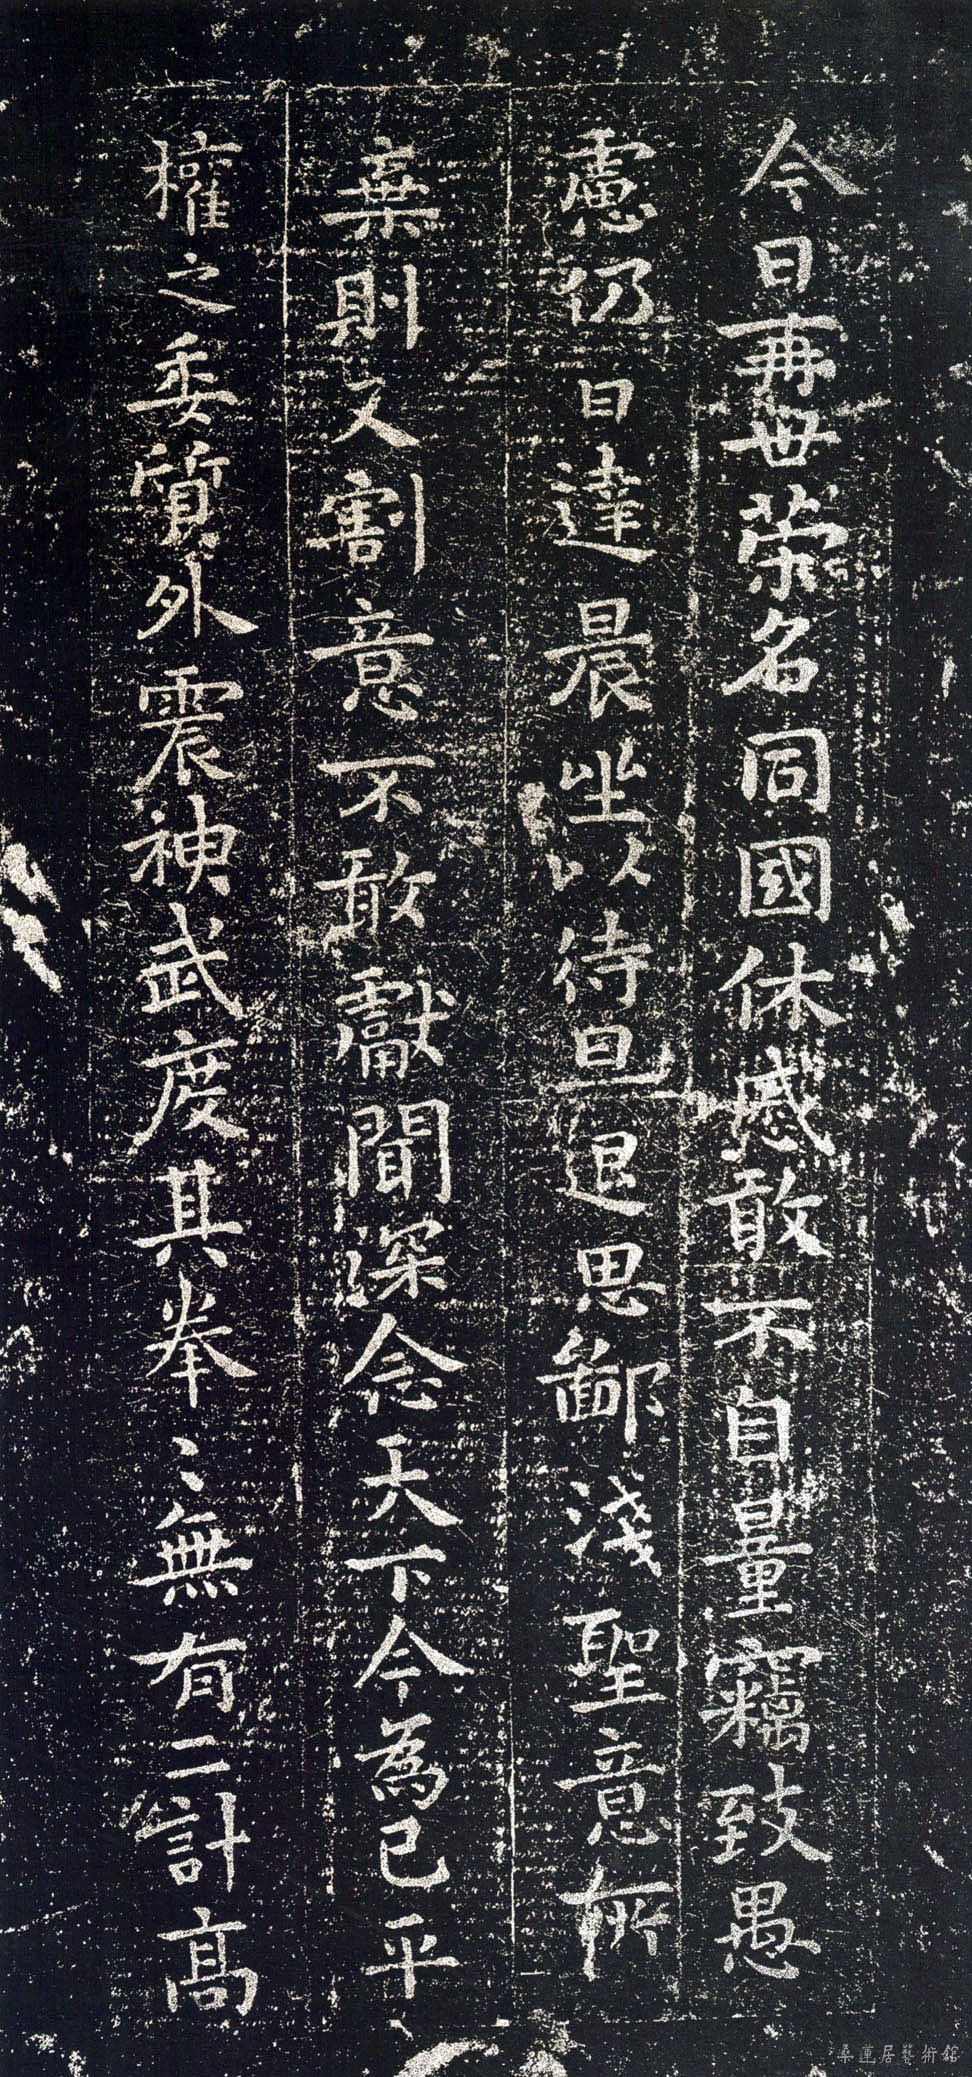 今日再世荣名同國休慼敢不自量竊致愚
慮仍日達晨坐以待旦退思鄙淺聖意所
棄則又割意不敢獻聞深念天下今為已平
權之委質外震神武度其拳〻無有二計高
桑蓮居藝術館